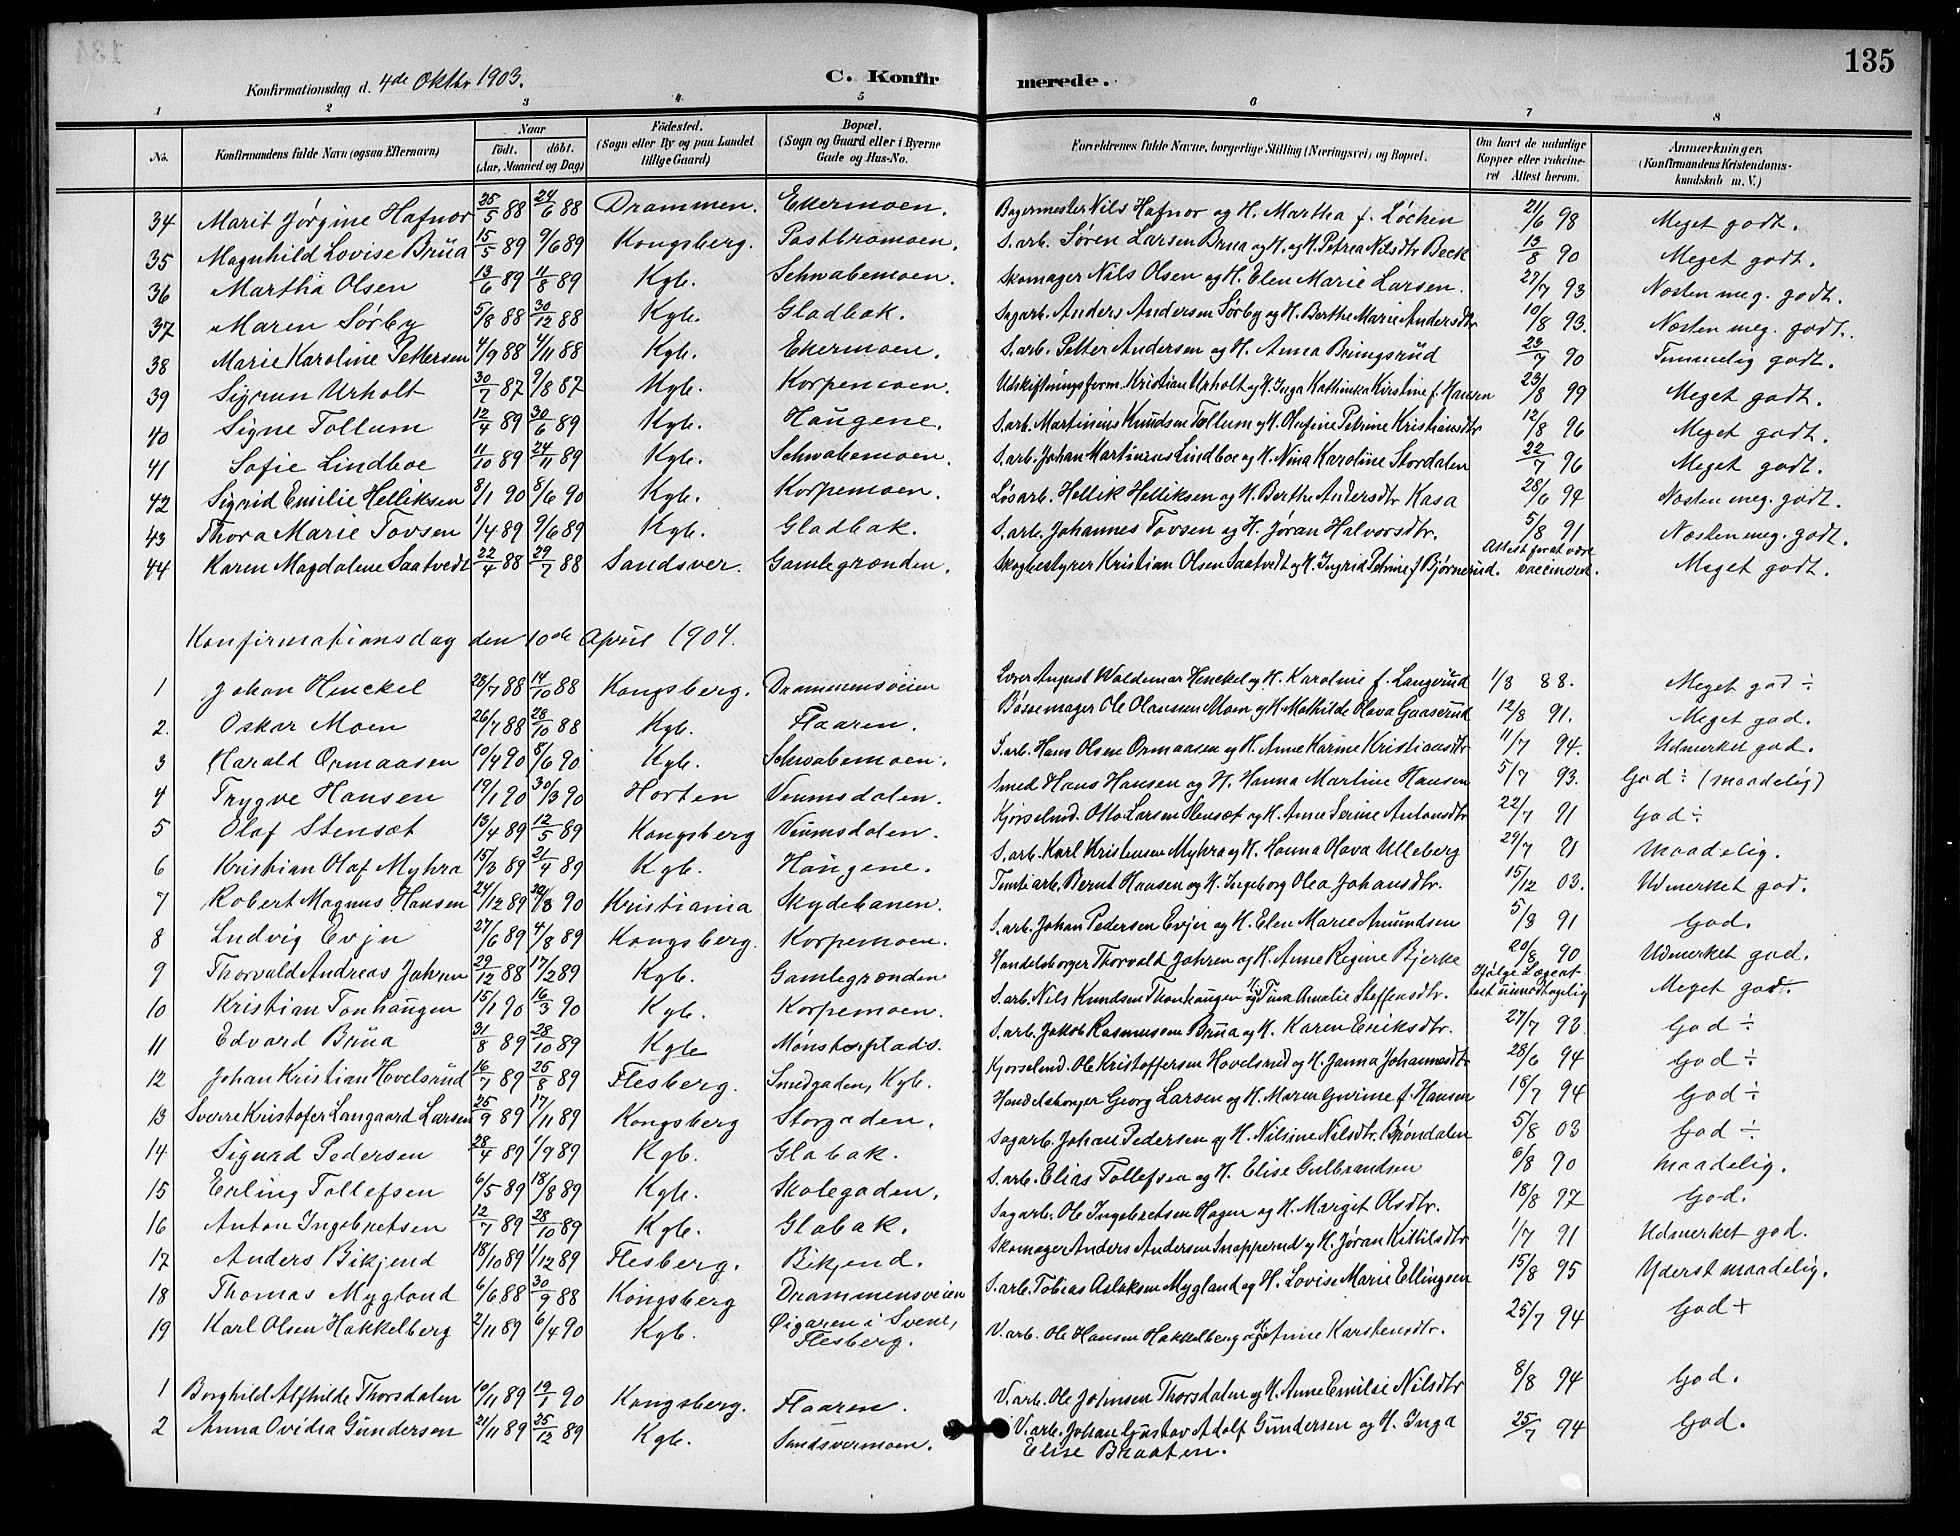 135
Konfirmationsdag d. 4de Oktbr 1903.
C. Konfirmerede.
1 2 3 4 5 6 7 8
No. Konfirmandens fulde Navn (ogsaa Efternavn) Naar født. døbt. (Aar, Maaned og Dag) Fødested. (Sogn eller By og paa Landet tillige Gaard) Bopæl. (Sogn og Gaard eller i Byerne Gade og Hus-No. Forældrenes fulde Navne, borgerlige Stilling (Næringsvei) og Bopæl. Om havt de naturlige Kopper eller vakcineret Attest herom. Anmærkninger. (Konfirmandens Kristendomskundskab m. V.)
34 Marit Jørgine Hafnor 25/5 88 24/6 88 Drammen. Ekermoen. Bagermester Nils Hafnor og H. Martha f. Løchen 21/6 98 Meget godt.
35 Magnhild Lovise Brua 15/5 89 9/6 89 Kongsberg. Postbromoen. S.arb. Søren Larsen Brua og H. og H. Petrea Nilsdtr Beck 13/8 90 Meget godt.
36 Martha Olsen 13/6 89 11/8 89 Kgb. Schwabemoen. Skomager Nils Olsen og H. Elen Marie Larsen. 27/7 93 Næsten meg. godt.
37 Maren Sørby 5/8 88 30/12 88 Kgb. Gladbak. Sagarb. Anders Andersen Sørby og H. Berthe Marie Andersdtr 10/8 93. Næsten meg. godt.
38 Marie Karoline Pettersen 4/9 88 4/11 88 Kgb. Ekermoen. S.arb. Petter Andersen og H. Anna Bringsrud 23/7 90 Temmelig godt.
39 Sigrun Urholt 30/7 87 9/8 87 Kgb. Korpemoen. Udskiftningsform. Kristian Urholt og H. Inga Kathinka Kirstine f. Hansen 23/8 99 Meget godt.
40 Signe Tollum 12/4 89 30/6 89 Kgb. Haugene. S.arb. Martinius Knudsen Tollum og H. Olufine Petrine Kristiansdtr 12/8 96 Meget godt.
41 Sofie Lindboe 11/10 89 24/11 89 Kgb. Schwabemoen. S.arb. Johan Martinius Lindboe og H. Nina Karoline Stordalen 22/7 96 Meget godt.
42 Sigrid Emilie Helliksen 8/1 90 8/6 90 Kgb. Korpemoen. Løsarb. Hellik Helliksen og H. Berthe Andersdtr Kasa 28/6 94 Næsten meg. godt.
43 Thora Marie Tovsen 1/4 89 9/6 89 Kgb. Gladbak. S.arb. Johannes Tovsen og H. Jøran Halvorsdtr. 5/8 91 Næsten meg. godt.
44 Karen Magdalene Saatvedt 22/4 88 29/7 88 Sandsver. Gamlegrønden. Skogbestyrer Kristian Olsen Saatvedt og H. Ingrid Petrine f Bjørnerud. Attest for at være vaccineret. Meget godt.
Konfirmationsdag den 10de April 1904.
1 Johan Henckel 28/7 88 14/10 88 Kongsberg. Drammensveien August Waldemar Henckel og H. Karoline f. Langerud 1/8 88. Meget god ÷
2. Oskar Moen 26/7 88 28/10 88 Kgb. Flaaren. Bøssemager Ole Olaussen Moen og H. Mathilde Olava Gaaserud 12/8 91. Meget god.
3 Harald Ormaasen 10/4 90 8/6 90 Kgb. Schwabemoen. S.arb. Hans Olsen Ormaasen og H. Anne Karine Kristiansdtr 11/7 94. Udmerket god.
4 Trygve Hansen 19/1 90 30/3 90 Horten Veumsdalen. Smed Hans Hansen og H. Hanna Martine Hansen 5/7 93. God ÷ (maadelig)
5 Olaf Stensæt 13/4 89 12/5 89 Kongsberg Veumsdalen. Kjørselmd. Otto Larsen Stensæt og H. Anne Serine Antonsdtr 22/7 91 God ÷
6 Kristian Olaf Myhra 15/3 89 21/4 89 Kgb. Haugene. S.arb. Karl Kristensen Myhra og H. Hanna Olava Ulleberg 29/7 91 Maadelig.
7 Robert Magnus Hansen 24/12 89 30/3 90 Kristiania Skydebanen. Tomtearb. Bernt Hansen og H. Ingeborg Olea Johansdtr. 15/12 03. Udmerket god.
8 Ludvig Evju 27/6 89 4/8 89 Kongsberg. Korpemoen. S.arb. Johan Pedersen Evju og H. Elen Marie Amundsen 5/8 91 God.
9 Thorvald Andreas Jahren 29/12 88 17/2 89 Kgb. Gamlegrønden. Handelsborger Thorvald Jahren og H. Anne Regine Bjerke 20/8 90 Udmerket god.
10 Kristian Tonhaugen 15/1 90 16/3 90 Kgb. Korpemoen. S.arb. Nils Knudsen Thonhaugen og H. Tina Amalie Steffensdtr. Ifølge Lægeattest uimodtagelig Meget god.
11 Edvard Brua 31/8 89 28/10 89 Kgb Mønsterplads. S.arb. Jakob Rasmussen Brua og H. Karen Eriksdtr. 27/7 93. God ÷
12 Johan Kristian Hovelsrud 16/7 89 25/8 89 Flesberg. Smedgaden, Kgb. Kjørselmd. Ole Kristoffersen Hovelsrud og H. Janna Johannesdtr 28/6 94 God ÷
13 Sverre Kristofer Langaard Larsen 25/9 89 17/11 89 Kongsberg Storgaden. Handelsborger Georg Larsen og H. Maren Gurine f. Hansen 18/7 94 God ÷
14 Sigurd Pedersen 28/4 89 1/9 89 Kgb. Glabak. Sagarb. Johan Pedersen og H. Nilsine Nilsdtr. Brøndalen 5/8 03 God ÷
15 Erling Tollefsen 6/5 89 18/8 89 Kgb. Skolegaden. S.arb. Elias Tollefsen og H. Elise Gulbrandsen 6/8 90 Maadelig.
16 Anton Ingebretsen 12/7 89 28/10 89 Kgb. Glabak. Sagarb. Ole Ingebretsen Hagen og H. Margit Olsdtr. 18/8 97 God.
17 Anders Bikjend 18/10 89 1/12 89 Flesberg. Bikjend. Skomager Anders Andersen Snapperud og H. Jøran Kittilsdtr 1/7 91 Udmerket god.
18 Thomas Mygland 6/6 88 30/9 88 Kongsberg Drammensveien S.arb. Tobias Aslaksen Mygland og H. Lovise Marie Ellingsen 15/8 95 Yderst maadelig.
19 Karl Olsen Hakkelberg 2/11 89 6/4 90 Kgb. Øigaren i Svene, Flesberg. V.arb. Ole Hansen Hakkelberg og H. Anne Karstensdtr. 25/7 94 God +
1 Borghild Alfhilde Thorsdalen 10/11 89 19/1 90 Kongsberg. Flaaren. V.arb. Ole Johnsen Thorsdalen og H. Anne Emilie Nilsdtr 8/8 94 God.
2 Anna Ovidia Gundersen 21/11 89 25/12 89 Kgb. Sandsvermoen. V.arb. Johan Gustav Adolf Gundersen og H. Inga Elise Braaten. 25/7 94 God.